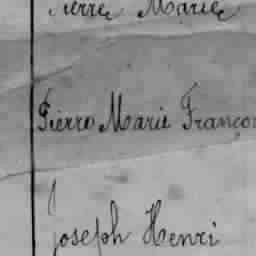 Pierre Marie
Pierre Marie Françoi
Joseph Henri